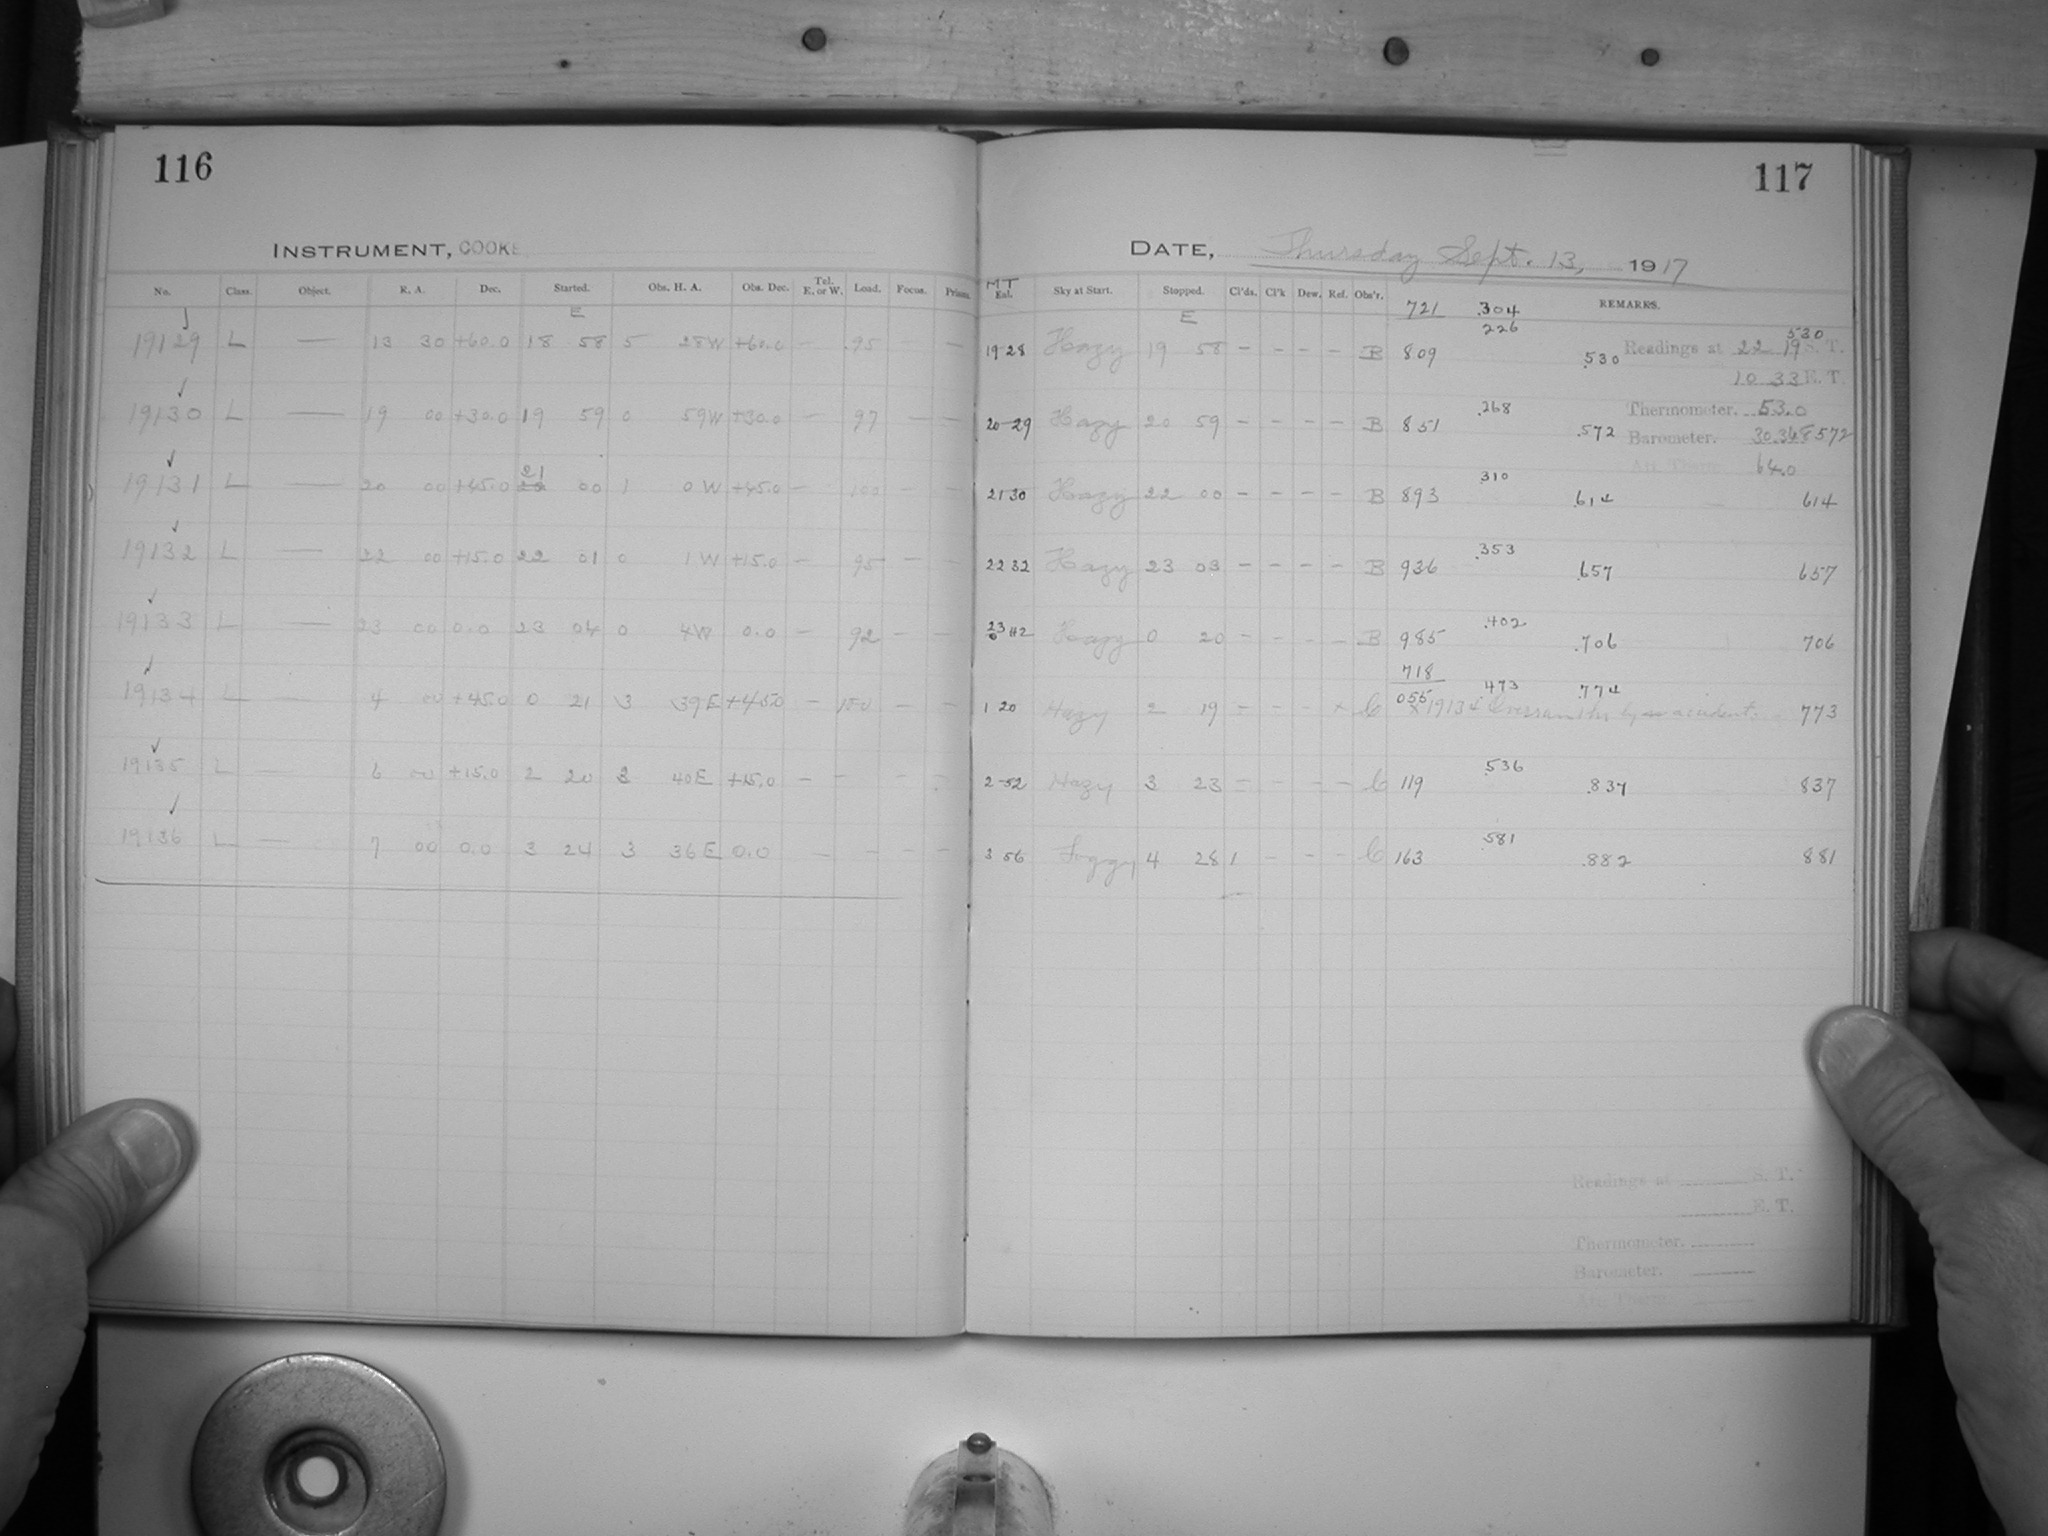 116
INSTRUMENT, COOKE
No. Class. Object. R. A. Dec. Started. Obs. H. A. Obs. Dec. Tel. E. or W. Load. Focus. Prisms.
E
19129 L — 13 30 +60.0 18 58 5 28W +60.0 — 95 — —
19130 L — 19 00 +30.0 19 59 0 59W +30.0 — 97 — —
21
19131 L — 20 00 +45.0 22 00 1 0 W +45.0 — 102 — —
19132 L — 22 00 +15.0 22 01 0 1 W +15.0 — 95 — —
19133 L — 23 00 0.0 23 04 0 4W 0.0 — 92 — —
19134 L — 4 00 +45.0 0 21 3 39E +45.0 — 150 — —
19135 L — 6 00 +15.0 2 20 3 40E +15.0 — —
19136 L — 7 00 0.0 3 24 3 36E 0.0 — — — —
117
DATE, Thursday Sept. 13, 1917
MT
Exl. Sky at Start. Stopped. Cl'ds. Cl'k Dew. Ref. Obs'r. 721 .304 REMARKS.
E
226 530
19 28 Hazy 19 58 – – – – B 809 .530 Readings at 22 19 S. T.
10 33 E. T.
.268 Thermometer. 53.0
20–29 Hazy 20 59 – – – – B 851 .572 Barometer. 30.348 572
Att. Therm. 64.0
310
21 30 Hazy 22 00 – – – – B 893 .614 614
.353
22 32 Hazy 23 03 – – – – B 936 .657 657
.402
23 42 Hazy 0 20 – – – – B 985 .706 706
0
718
1 20 Hazy 2 19 – – – x C 055 473 .774 773
x 19134 Overran by accident.
.536
2–52 Hazy 3 23 – – – – C 119 .837 837
.581
3 56 Foggy 4 28 1 – – – C 163 .882 881
Readings at S. T.
E. T.
Thermometer.
Barometer.
Att. Therm.